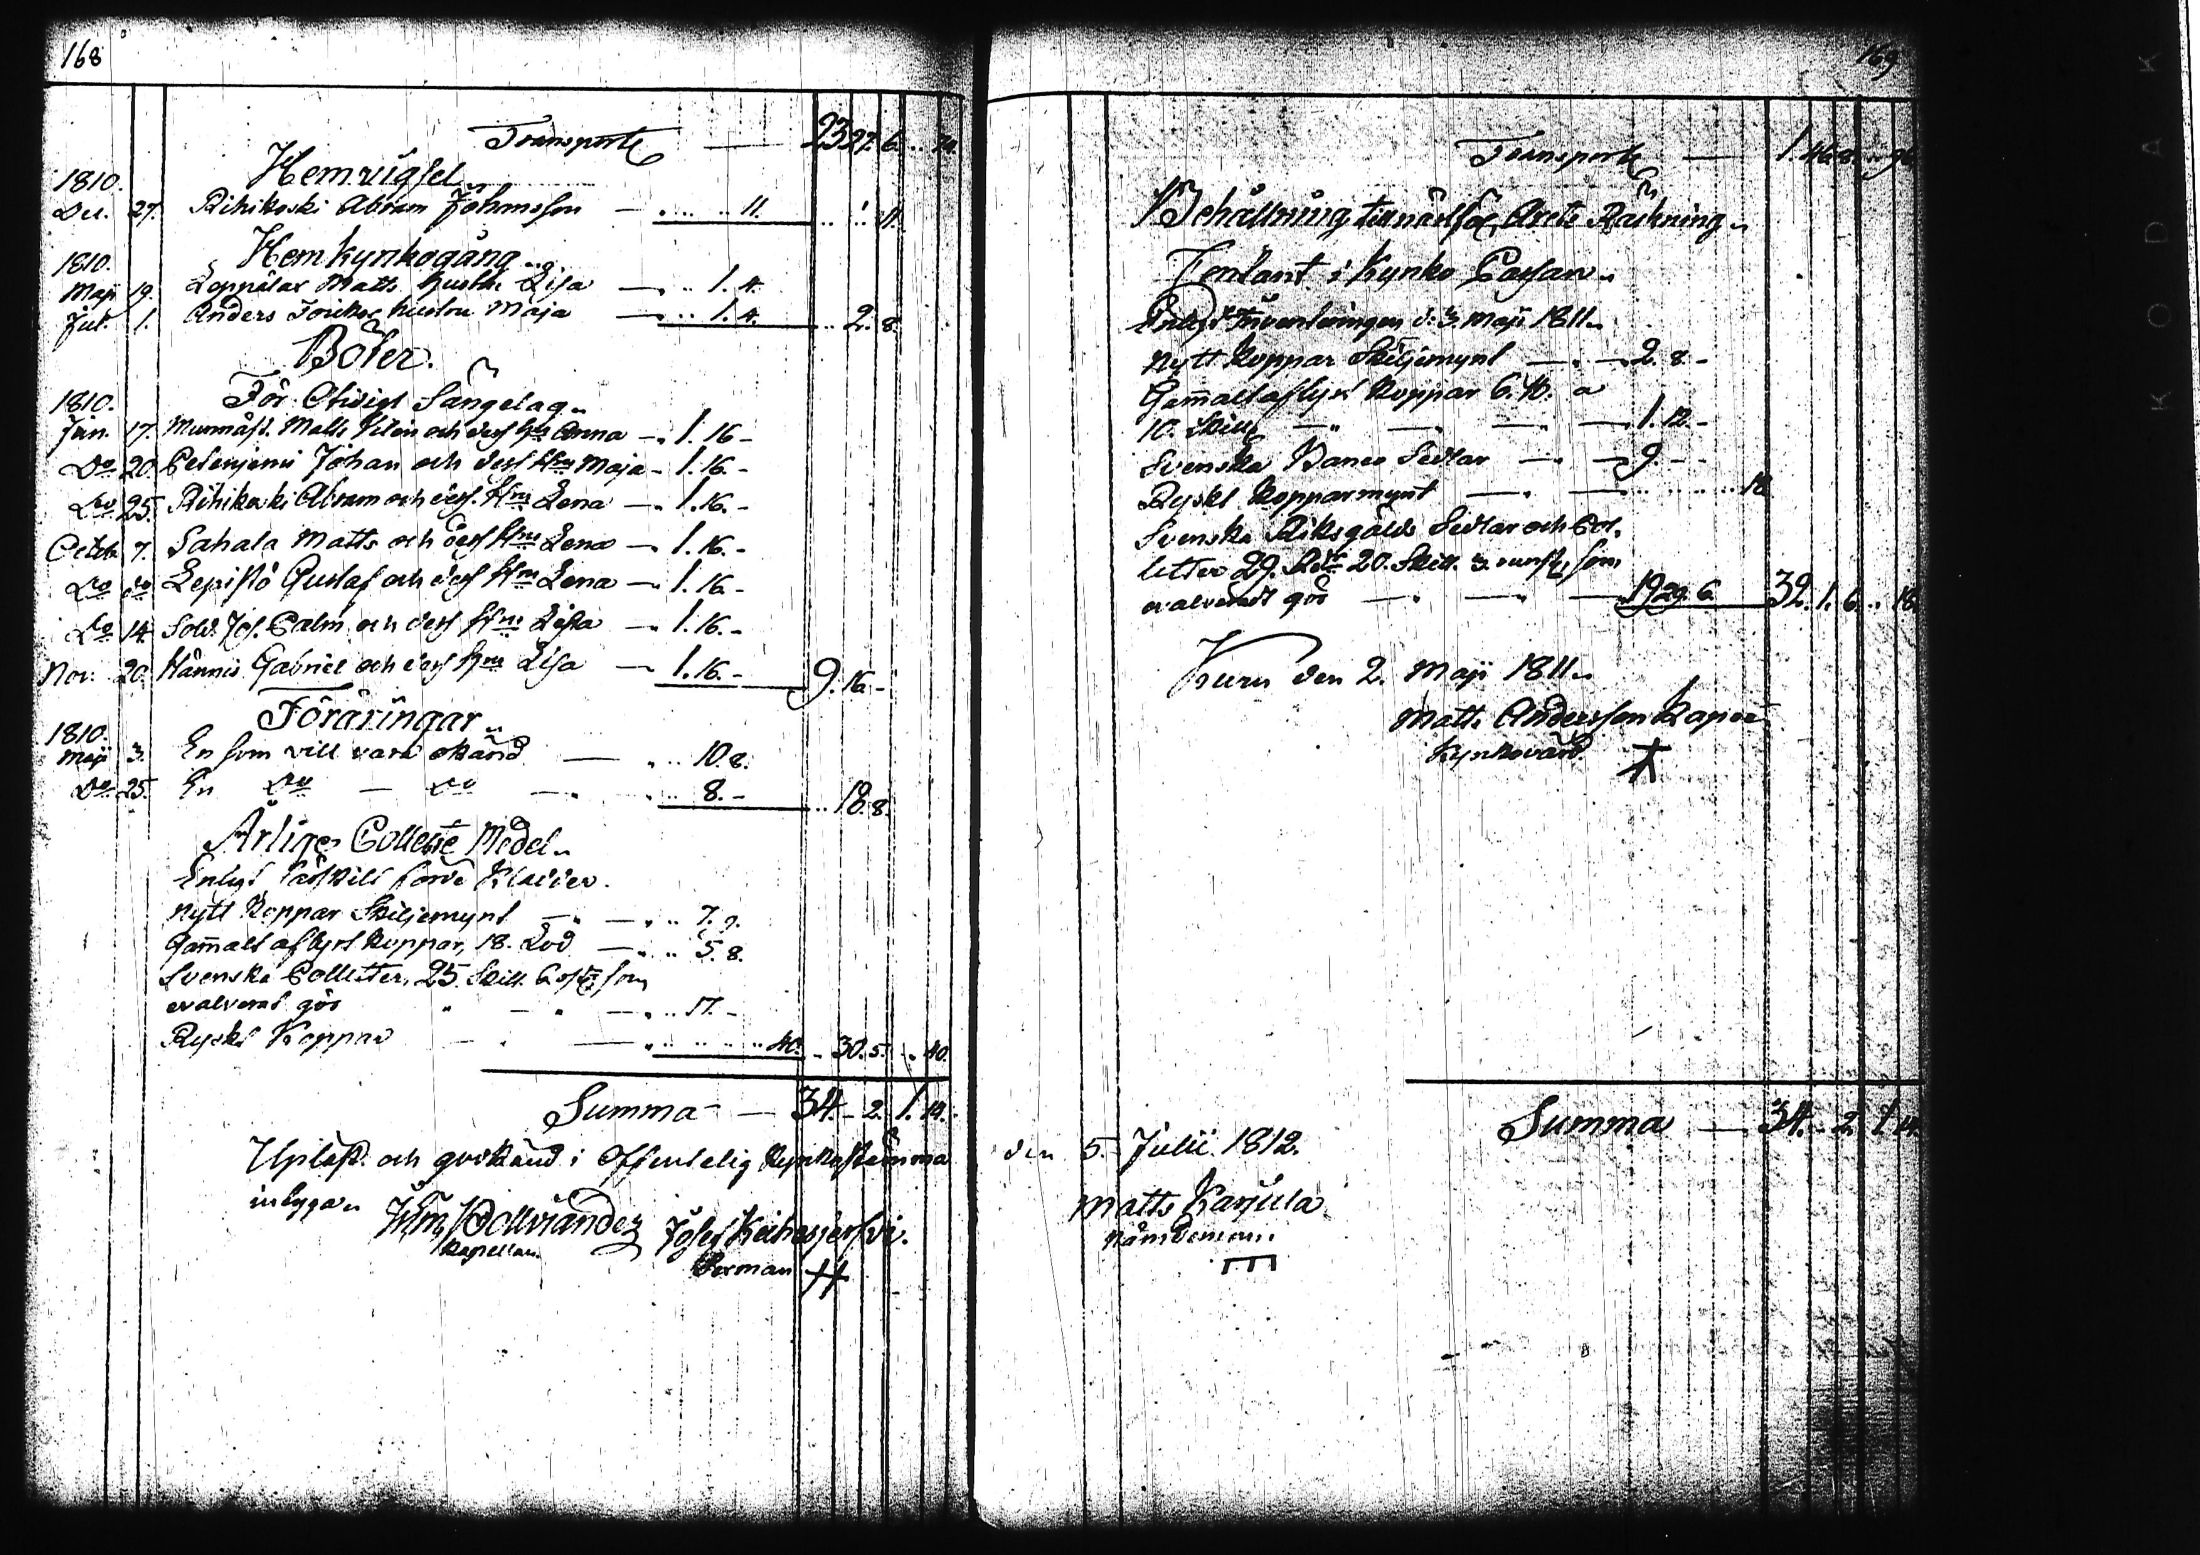 168
Transport — 23 27. 6. .. 74.
1810. Hemvigsel
Dec. 27. Riihikoski Abram Johansson — . .. .. 11. .. .. 11.
1810. Hemkyrkogång
Maji 19. Leppälax Matts hustru Lisa — . .. 1. 4.
Jul. 1. Anders hustru Maja — . .. 1. 4. .. 2. 8.
Böter.
1810. För Otidigt Sängelag
Jan. 17. Matts och dess Hu Anna — . 1. 16 -
Do 20. Johan och dess Hu Maja - 1. 16. -
Do 25. Riihikoski Abram och dess Hu Lena — . 1. 16. -
Octob. 7. Sahala Matts och dess Hu Lena — 1. 16. -
Do do Lepistö Gustaf och dess Hu Lena — 1. 16 -
Do 14. Sold. Jos. Palm och dess Hu Lisa — . 1. 16. -
Nov. 20. Hannus Gabriel och dess Hu Lisa — 1. 16. - 9. 16 -
Föräringar
1810.
Maji 3. En som vill vara okänd — . .. 10. 8.
Do 25. En Do — Do — . .. 8. - .. 18. 8.
Årlige Collecte Medel
Enligt särskilt förde Kladder.
Nytt Koppar Skiljemynt — . — . .. 7. 9.
Gam̄alt aflyst Koppar, 18. Lod — . .. 5. 8.
Svenska Polletter, 25. Skill. 6 rst. som
evalverat gör — . — . .. 17. -
Ryskt Koppar — . — . .. .. .. 40. .. 30. 5. .. 40.
Summa — 34. - 2. 1. 14.
Upläst och godkänd i Offentelig Kyrkostämma
intygar
Bollviander Josef Keihäsjerfvi.
Kapellan. Sexman
169
Transport — 1. 46. 8. .. 96
Behållning till nästföl. Årets Räkning
Contant i Kyrko Cassan
Enligt Inventeringen d. 3. Maji 1811
Nytt Koppar Skiljemynt — . — 2. 8 -
Gam̄alt aflyst Koppar 6. ℔. a
10. Skill. — . — . — . — 1. 12. -
Svenska Banco Sedlar — . — 9. - -
Ryskt Kopparmynt — . — .. .. .. 18
Svenska Riksgälds Sedlar och Pol-
letter 29. Rdr 20. Skill. 3 runst. som
evalveradt gör — . — . — 19 29. 6. 32. 1. 6. .. 18.
Kuru den 2. Maji 1811
Matts Andersson
Kyrkovärd.
Summa — 34. .. 2. 1. 14.
den 5. Julii 1812.
Matts Karjula
Nämdeman.